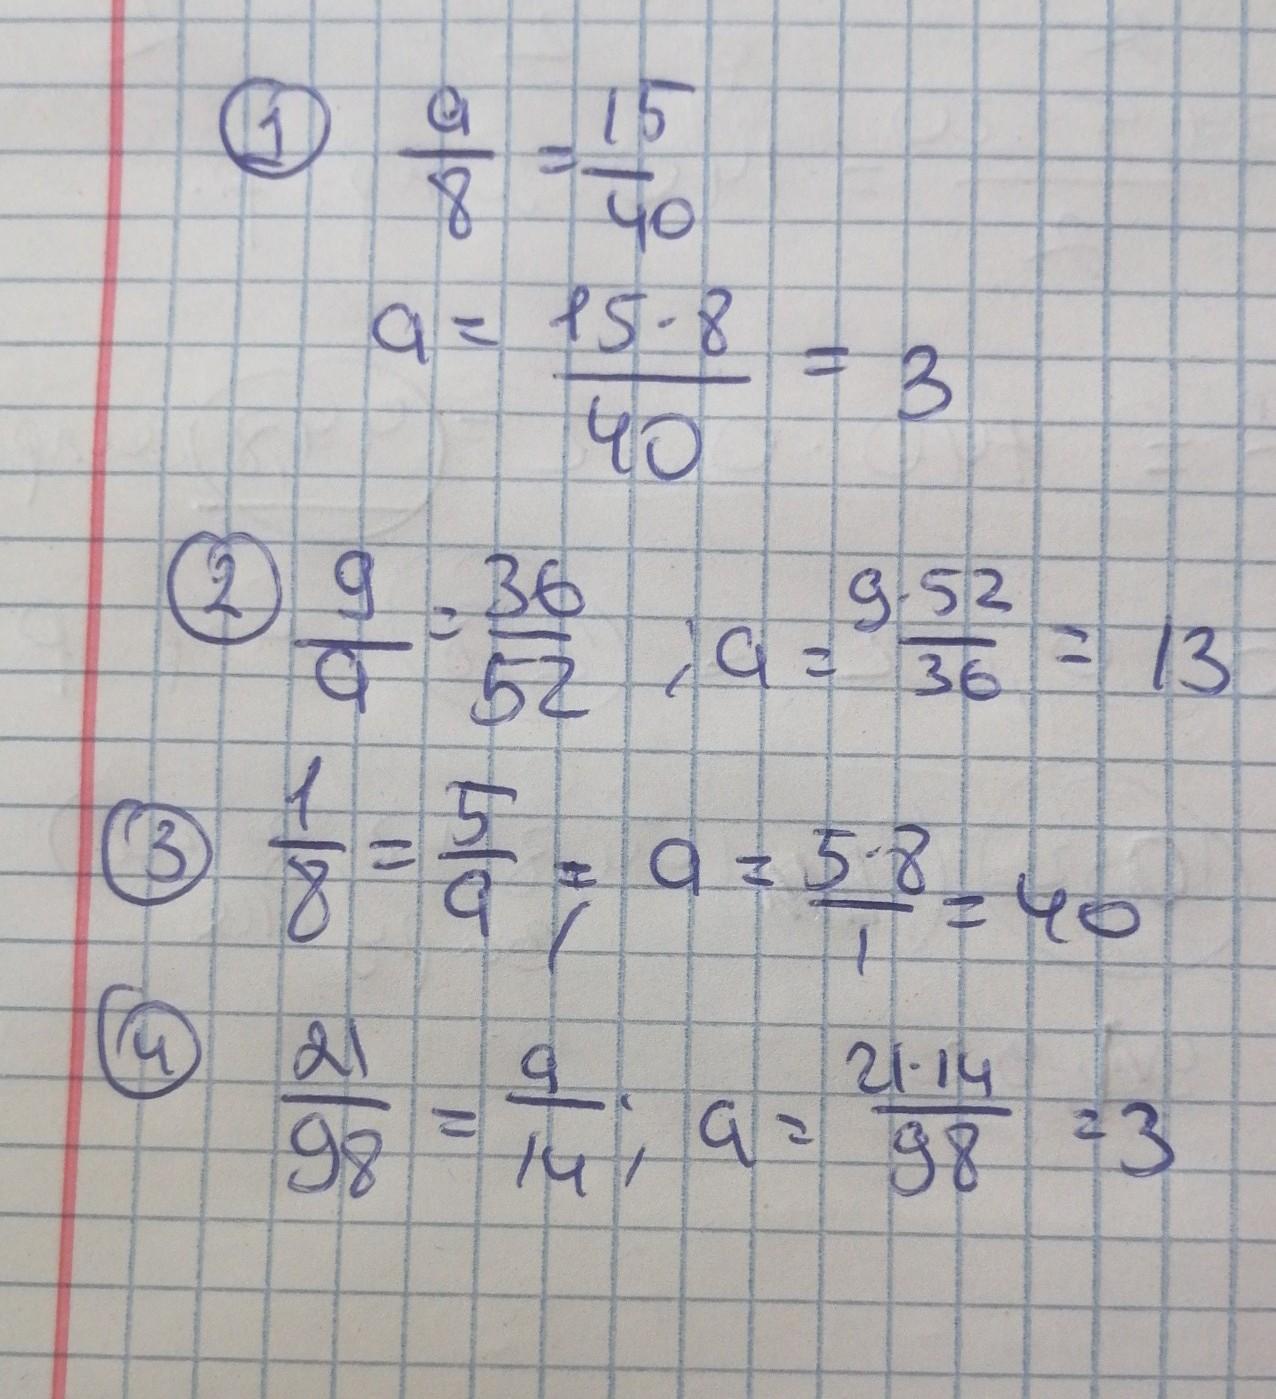 ① a/8 = 15/40
a = 15·8/40 = 3
② 9/a = 36/52 ; a = 9·52/36 = 13
③ 1/8 = 5/a ; a = 5·8/1 = 40
④ 21/98 = a/14 ; a = 21·14/98 = 3